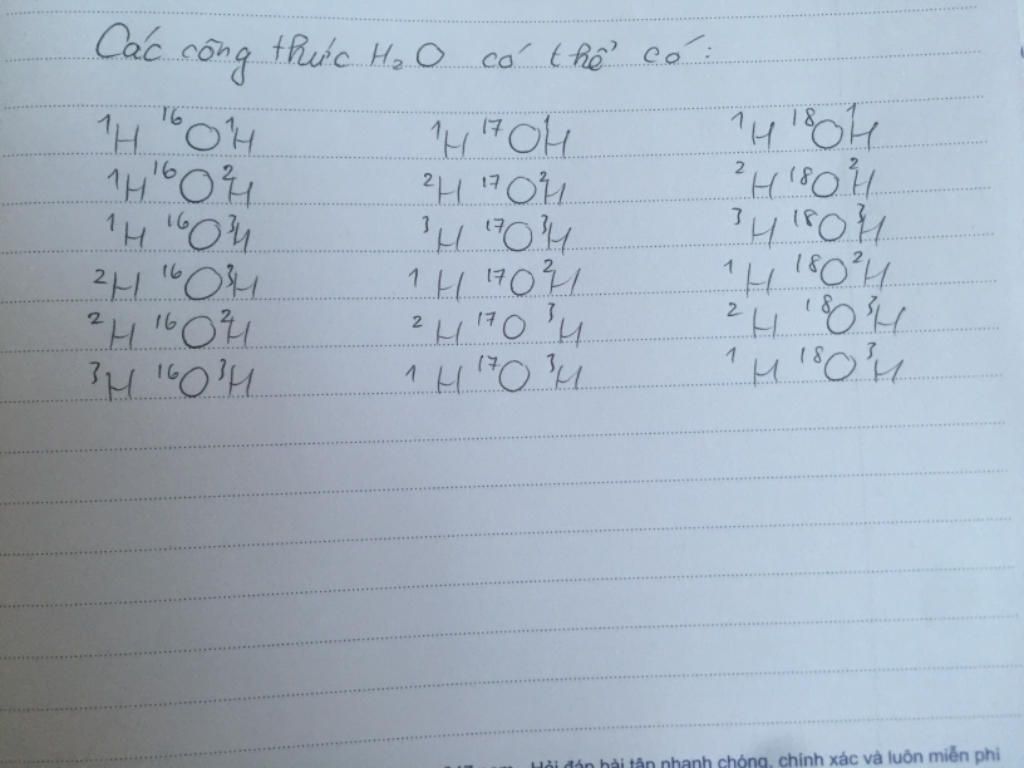 Các công thức H₂O có thể có:
¹H ¹⁶O ¹H ¹H ¹⁷O ¹H ¹H ¹⁸O ¹H
¹H ¹⁶O ²H ²H ¹⁷O ²H ²H ¹⁸O ²H
¹H ¹⁶O ³H ³H ¹⁷O ³H ³H ¹⁸O ³H
²H ¹⁶O ³H ¹H ¹⁷O ²H ¹H ¹⁸O ²H
²H ¹⁶O ²H ²H ¹⁷O ³H ²H ¹⁸O ³H
³H ¹⁶O ³H ¹H ¹⁷O ³H ¹H ¹⁸O ³H
Hỏi đáp bài tập nhanh chóng, chính xác và luôn miễn phí